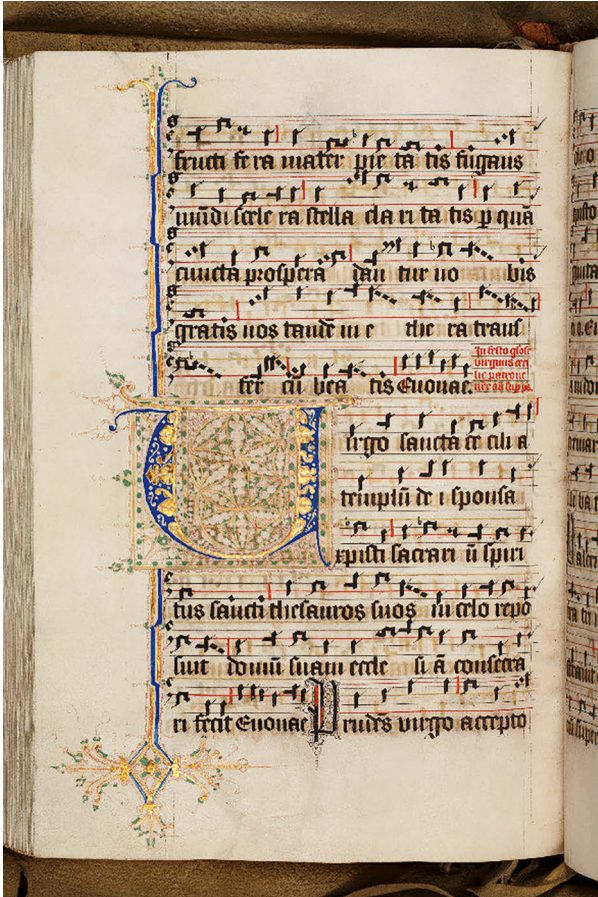 fructi fe ra mater pie ta tis fugans
mūdi scele ra stella cla ri ta tis p quā
cuncta prospera dan tur no bis
gratis nos tandē in e the ra trans
fer cū bea tis Euouae.
In festo gl̄ose
virginis ceci
lie patrone
Virgo sancta ce cili a
templū de i sponsa
xpisti sacrari ū spiri
tus sancti thesauros suos in celo repo
suit domū suam eccle si ā consecra
ri fecit Euouae Prudēs virgo accepto